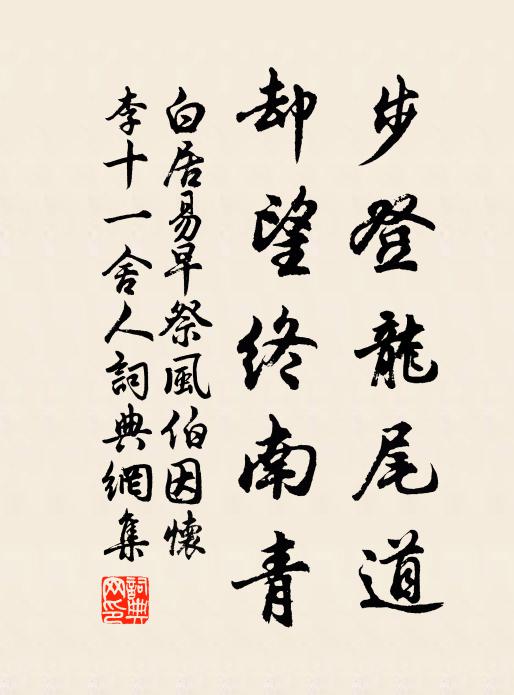 步登龍尾道
却望終南青
白居易早祭風伯因懷
李十一舍人詞典網集
詞典網印